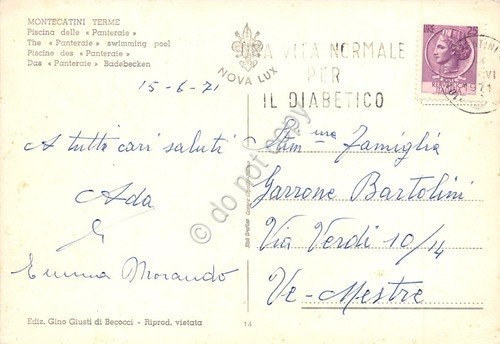 MONTECATINI TERME
Piscina delle «Panteraie»
The «Panteraie» swimming pool
Piscine des «Panteraie»
Das «Panteraie» Badebecken
15-6-71
A tutti cari saluti
Ada
e
Emma Morando
Ediz. Gino Giusti di Becocci - Riprod. vietata
NOVA LUX
UNA VITA NORMALE
PER
IL DIABETICO
LIRE 25
1971
Stim.ma Famiglia
Garrone Bartolini
Via Verdi 10/14
Ve-Mestre
14
do not copy